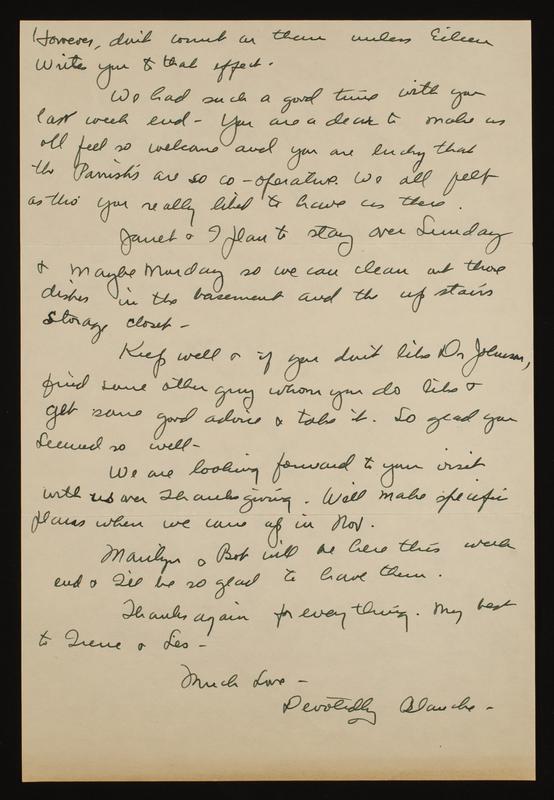 However, don't count on them unless Eileen
Writes you to that effect.
We had such a good time with you
last week end - You are a dear to make us
all feel so welcome and you are lucky that
the Parrish's are so co-operative. We all felt
as tho' you really liked to have us there.
Janet & I plan to stay over Sunday
& maybe Monday so we can clean out those
dishes in the basement and the up stairs
Storage closet -
Keep well & if you don't like Dr Johnson,
find some other guy whom you do like &
get some good advice & take it. So glad you
seemed so well -
We are looking forward to your visit
with us over Thanksgiving. Will make specific
plans when we come up in Nov.
Marilyn & Bob will be here this week
end & I'll be so glad to have them.
Thanks again for everything. My best
to Irene & Les -
Much Love -
Devotedly Blanche -